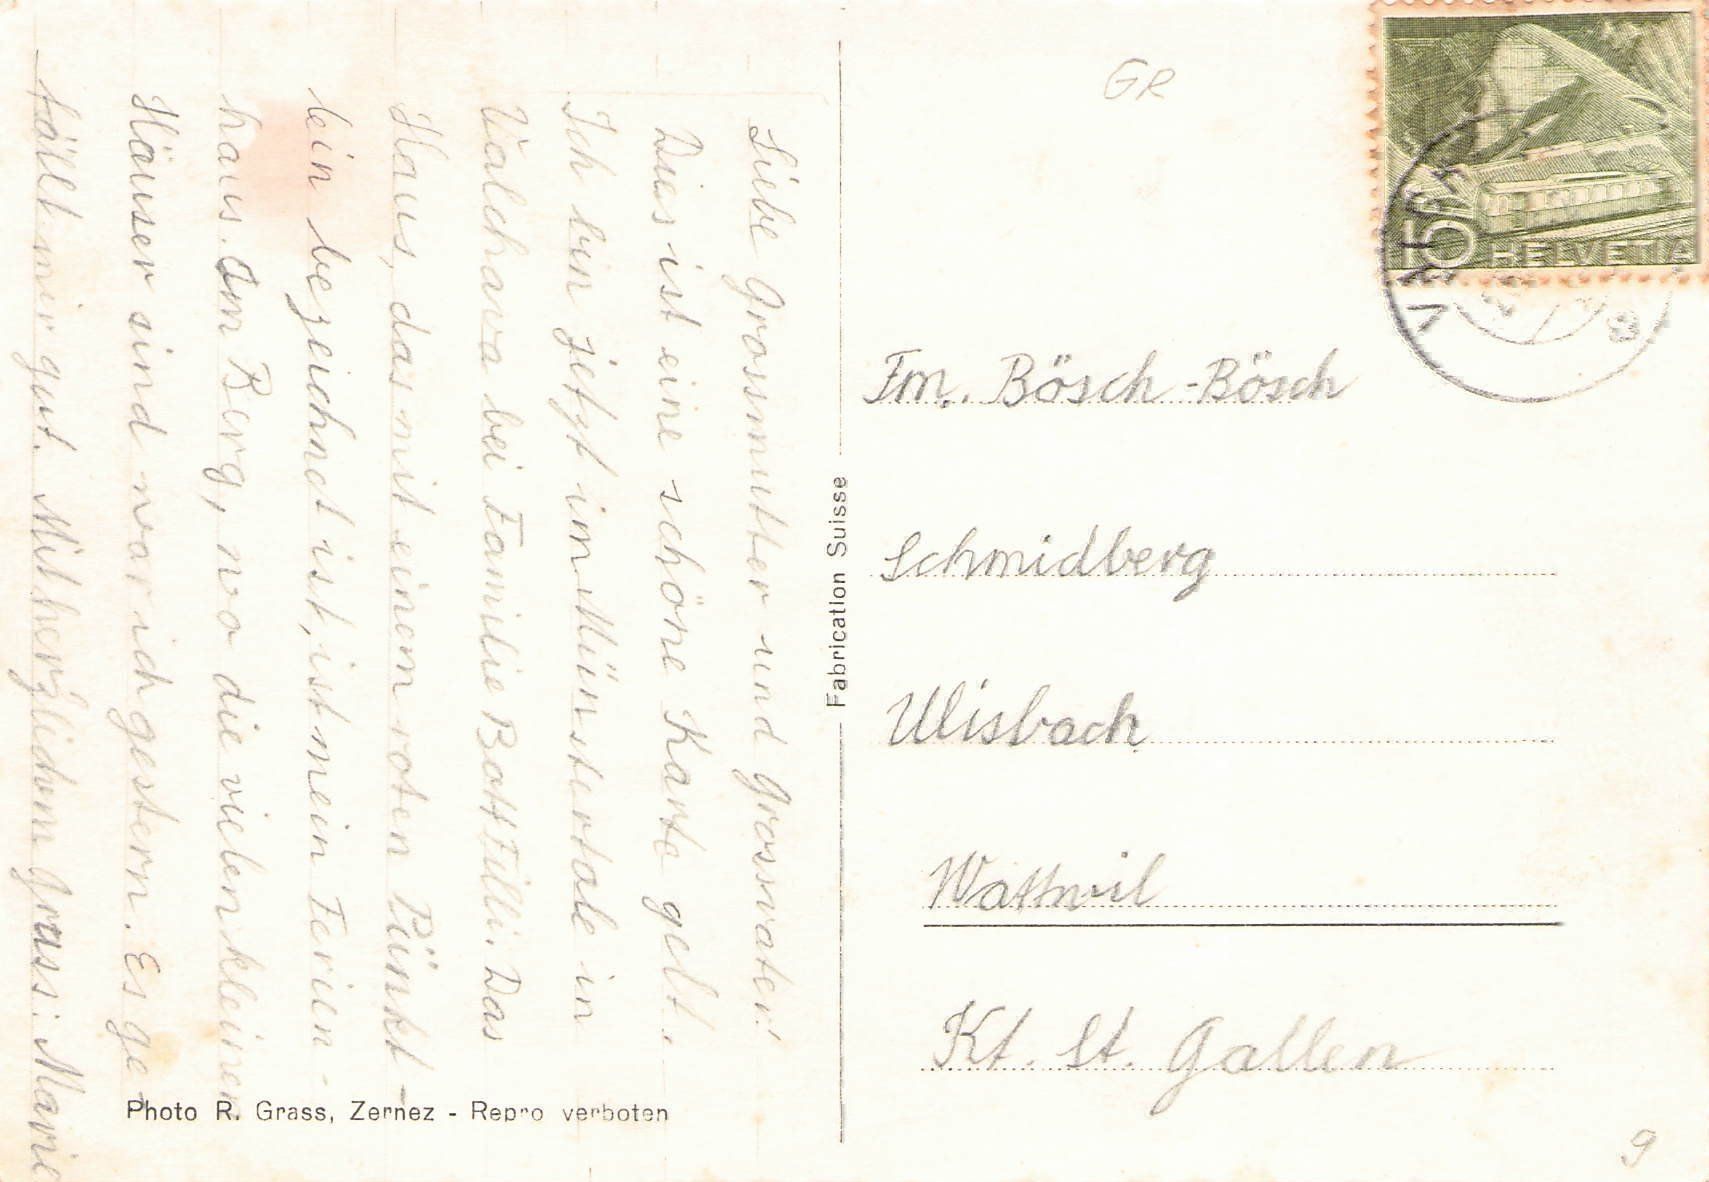 Liebe Grossmutter und Grossvater!
Dies ist eine schöne Karte gelt.
Ich bin jetzt im Münstertale in
Valchava bei Familie Bass Filli. Das
Haus, das mit einem roten Pünkt-
lein bezeichnet ist, ist mein Ferien-
haus. Am Berg, wo die vielen kleinen
Häuser sind war ich gestern. Es ge-
fällt mir gut. Mit herzlichem Gruss: Marie
Photo R. Grass, Zernez - Repro verboten
Fabrication Suisse
GR
15 HELVETIA
Fm. Bösch-Bösch
Schmidberg
Ulisbach
Wattwil
Kt. St. Gallen
9